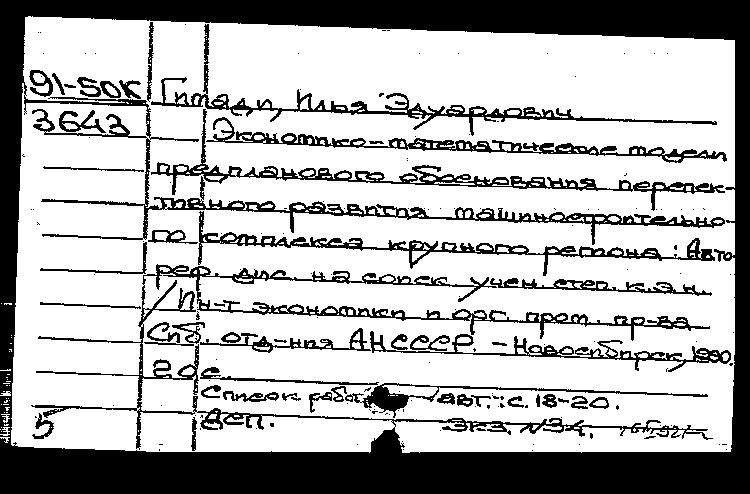 91-50К Гитади, Илья Эдуардович.
3643 Экономико-математические модели
предпланового обоснования перспек-
тивного развития машиностроительно-
го комплекса крупного региона : Авто-
реф. дис. на соиск учен. степ. к.э.н.
/Ин-т экономики и орг. пром. пр-ва
Сиб. отд-ния АН СССР. - Новосибирск, 1990.
20 с.
Список работ авт.: с. 18-20.
5 Дсп. Экз. №34.